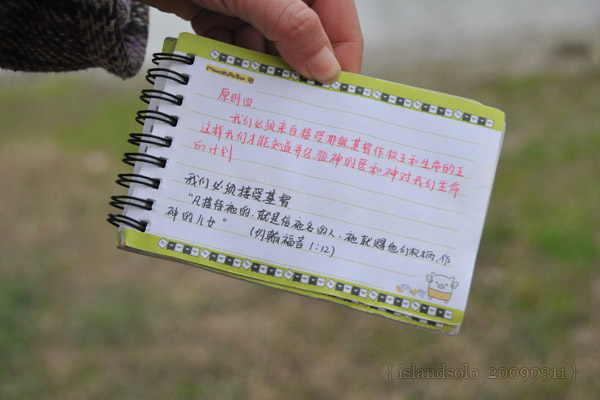 原则四.
我们必须亲自接受耶稣基督作救主和生命的主
这样我们才能知道并经验神的爱和神对我们生命
的计划
我们必须接受基督
“凡接待祂的,就是信祂名的人,祂就赐他们权柄,作
神的儿女” (约翰福音 1:12)
{islandsolo 20090311}